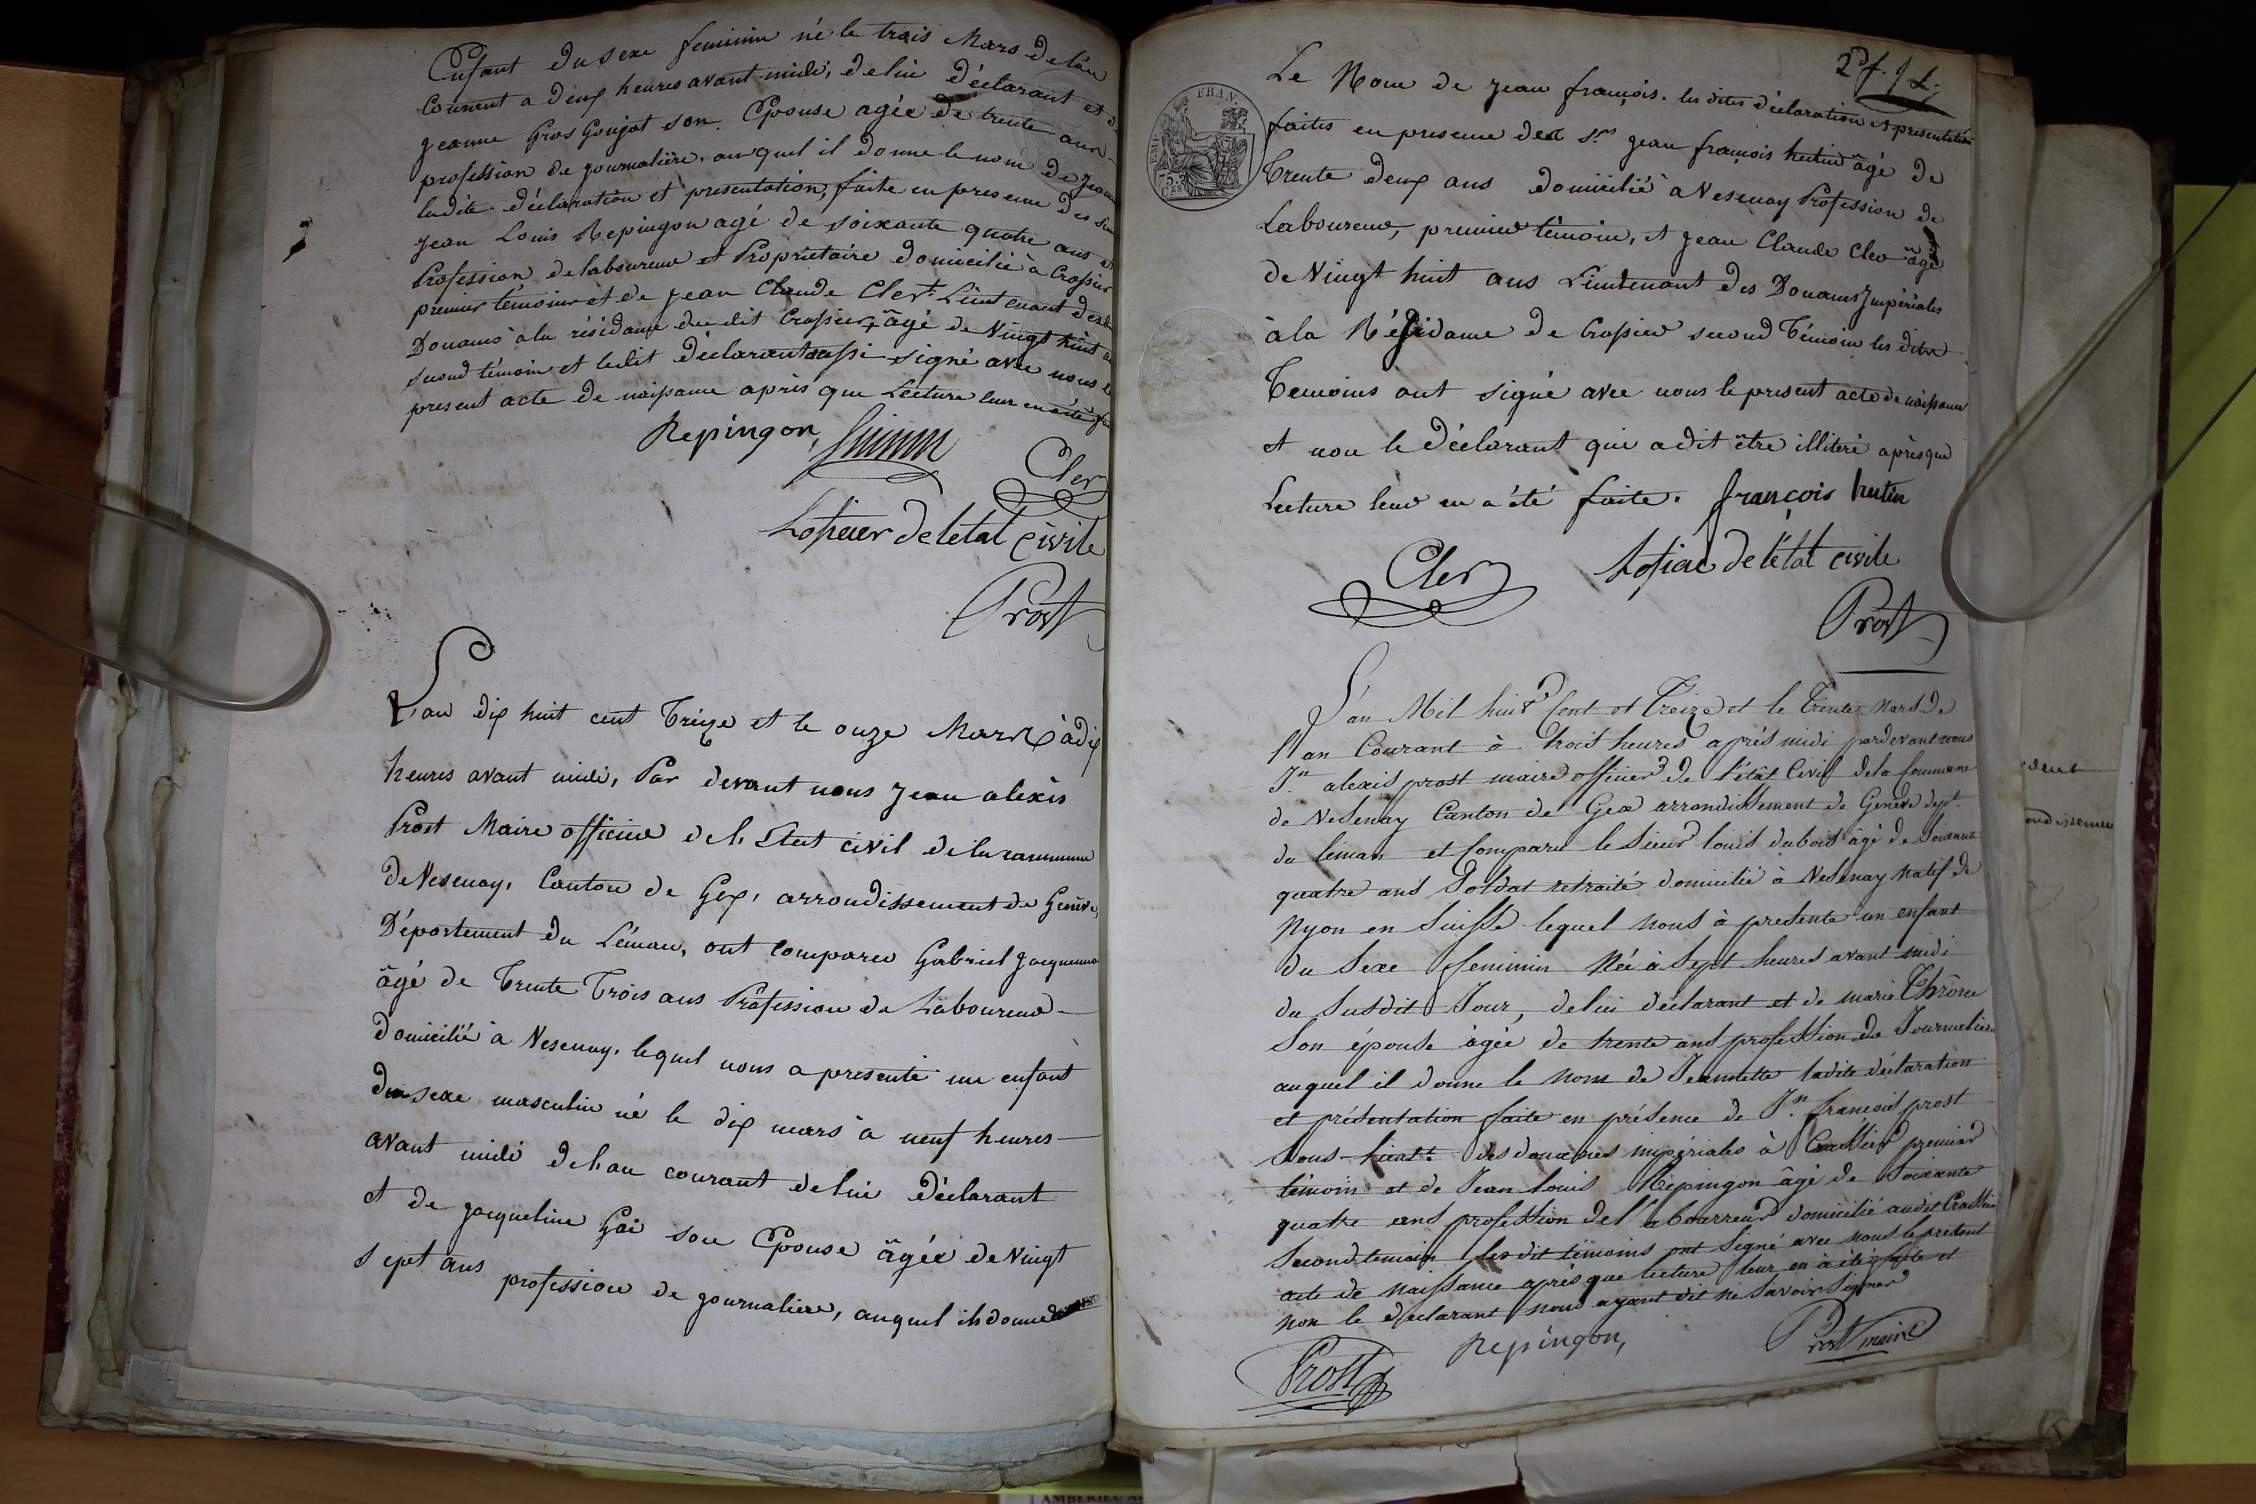 Enfant du sexe feminin né le trois Mars de l'an
Courant a deux heures avant midi, de lui déclarant et d
jeanne Gros Goujat son Epouse agée de trente ans
profession de journalière, auquel il donne le nom de Jeanne
ladite déclaration et presentation, faite en presence des S
jean Louis Repingon agé de soixante quatre ans et
Profession de laboureur et Propriétaire domicilié à Crassier
premier témoin et de jean Claude Clert Lieutenant des
Douanes à la résidance du dit Crassier, âgé de Vingt huit a
second témoin et ledit déclarant aussi signé avec nous le
present acte de naissance après que Lecture leur en a été
Repingon,
Cler
Lofficier de letat civile
Prost
L'an dix huit cent Treize et le onze Mars à dix
heures avant midi, Par devant nous Jean alexis
Prost Maire officier de l'Etat civil de la commune
de Vesenay, Canton de Gex, arrondissement de Genève,
Département du Léman, ont comparu Gabriel Jacquemin
âgé de Trente Trois ans Profession de Laboureur
domicilié à Vesenay, lequel nous a presenté un enfant
du sexe masculin né le dix mars à neuf heures
avant midi de l'an courant de lui déclarant
et de Jacqueline Gai son Epouse âgée de Vingt
sept ans profession de journaliere, auquel il donne
Le Nom de jean françois. les dites déclaration et presentation
faites en presence des Srs jean françois hutin âgé de
Trente deux ans domicilié à Vesenay Profession de
Laboureur, premier témoin, et jean Claude Cler âgé
de Vingt huit ans Lieutenant des Douanes Impériales
à la Résidance de Crassier second Témoin les dits
Temoins ont signé avec nous le present acte de naissance
et non le déclarant qui a dit être illiteré après que
Lecture leur en a été faite. françois hutin
Cler
Lofficier de l'état civile
Prost
L'an Mil huit Cent et Treize et le Trente Mars de
l'an Courant à trois heures après midi pardevant nous
Jn alexis prost maire officier de l'état Civil de la Commune
de Vesenay Canton de Gex arrondissement de Genève dept.
du leman et Comparu le Sieur louis dubois âgé de Soixante
quatre ans Soldat retraité domicilié à Vesenay natif de
Nyon en Suisse lequel nous à presenté un enfant
du Sexe feminin Née à Sept heures avant midi
du Susdit Jour, de lui déclarant et de marie
Son épouse âgée de trente ans profession de Journaliere
auquel il donne le nom de Jeannette ladite déclaration
et présentation faite en présence de Jn francois prost
Sous lieut. des douanes impériales à Crassier premier
témoin et de Jean louis Repingon âgé de Soixante
quatre ans profession de l'abourreur domicilié audit Crassier
Second temoin les dit témoins ont Signé avec nous le present
acte de naissance après que lecture leur en à été faite et
non le déclarant nous ayant dit ne Savoir Signer
Prost
Repingon,
Prost maire